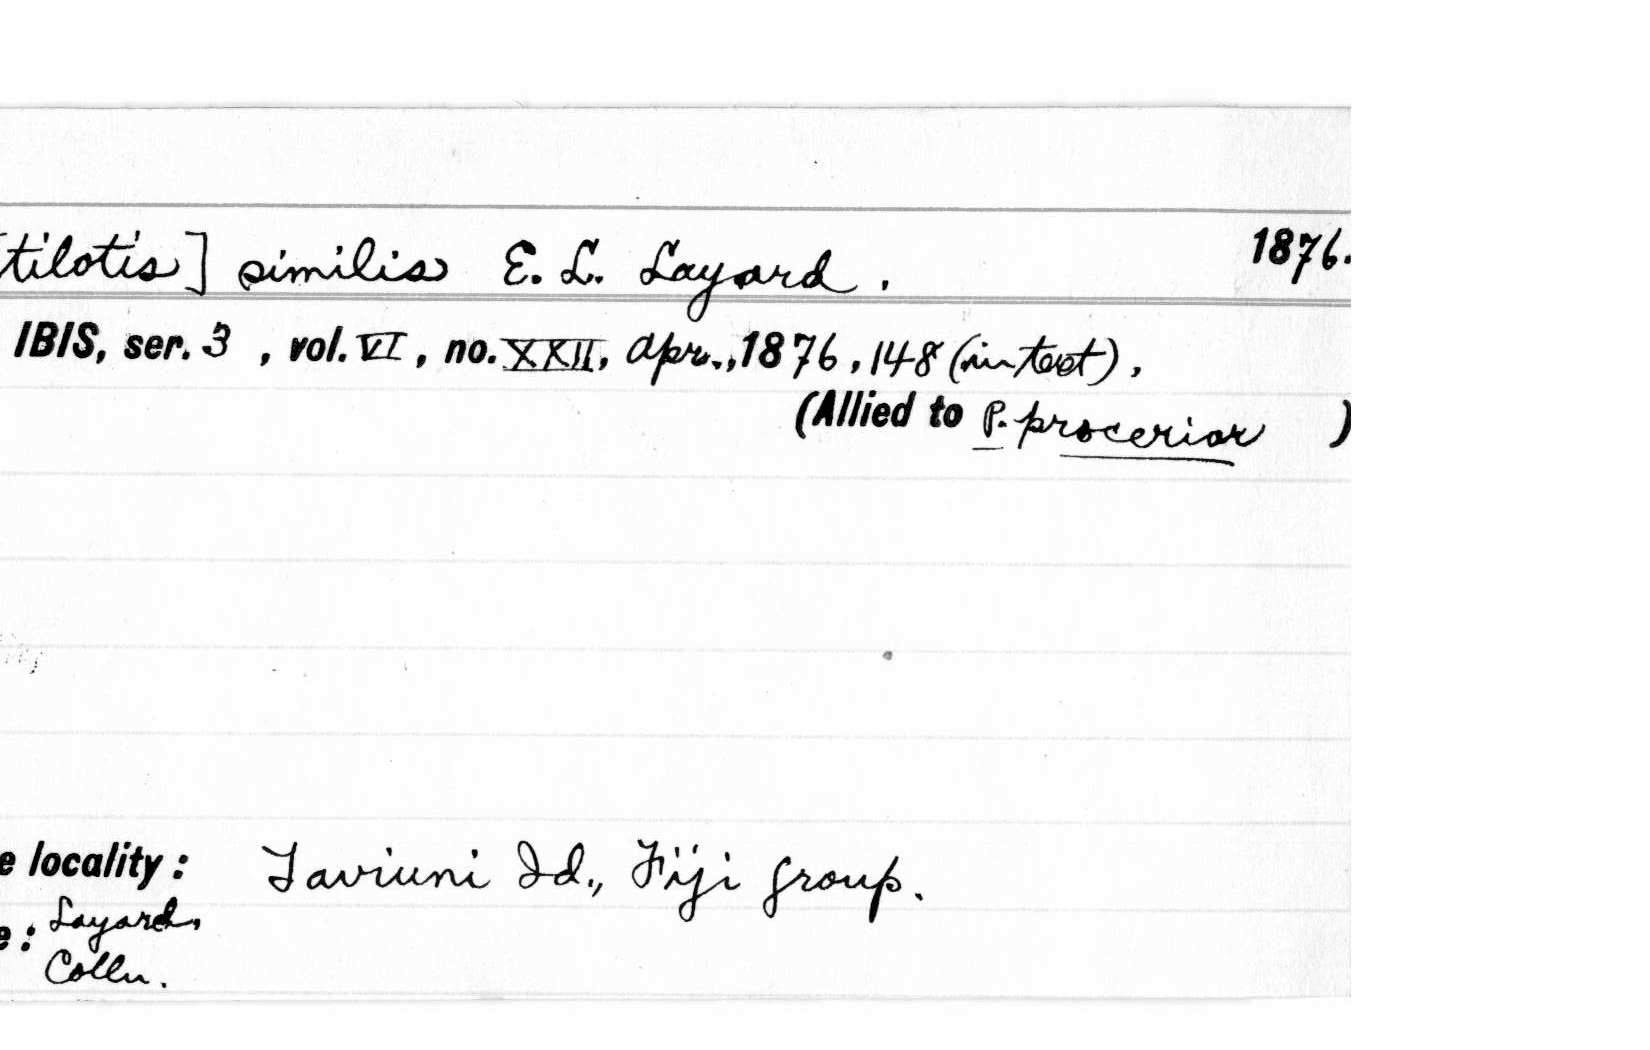 tilotis] similis E. L. Layard. 1876.
IBIS, ser. 3, vol. VI, no. XXII, Apr., 1876, 148 (in text),
(Allied to P. procerior )
e locality: Taviuni Id., Fiji group.
e: Layard,
Colln.